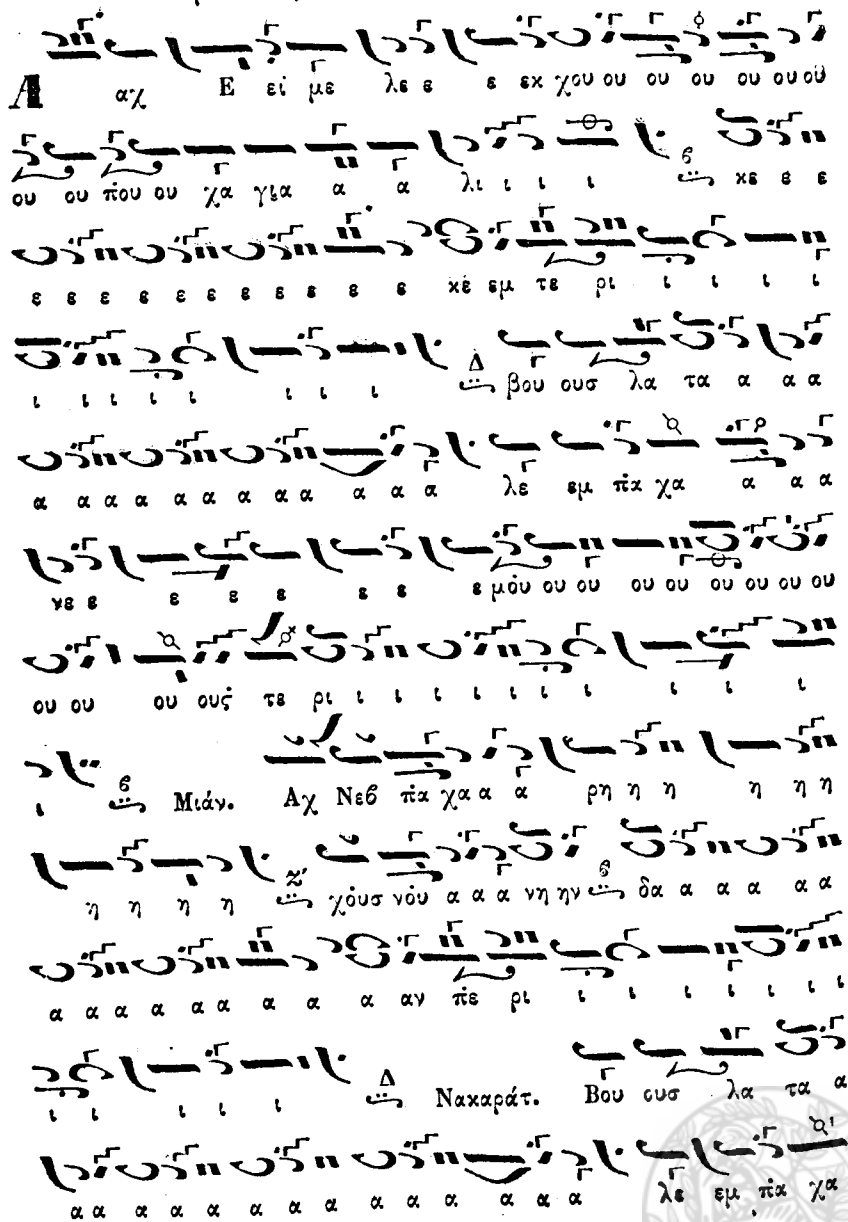 Α αχ Ε εί με λε ε ε εκ χου ου ου ου ου ου ού
ου ου που ου χα για α α λι ι ι ι ϐ κε ε ε
ε ε ε ε ε ε ε ε ε ε ε κέ εμ τε ρι ι ι ι ι
ι ι ι ι ι ι ι ι Δ βου ουσ λα τα α α α
α α α α α α α α α α α α λε εμ πα χα α α α
κε ε ε ε ε ε ε ε μόυ ου ου ου ου ου ου ου ου
ου ου ου ους τε ρι ι ι ι ι ι ι ι ι ι ι ι
ι ϐ Μιάν. Αχ Νεϐ πα χα α α ρη η η η η η
η η η η ζ' χόυσ νόυ α α α νη ην ϐ δα α α α α α
α α α α α α α α α αν πε ρι ι ι ι ι ι ι ι
ι ι ι ι ι Δ Νακαράτ. Βου ουσ λα τα α
α α α α α α α α α α α α α λε εμ πα χα